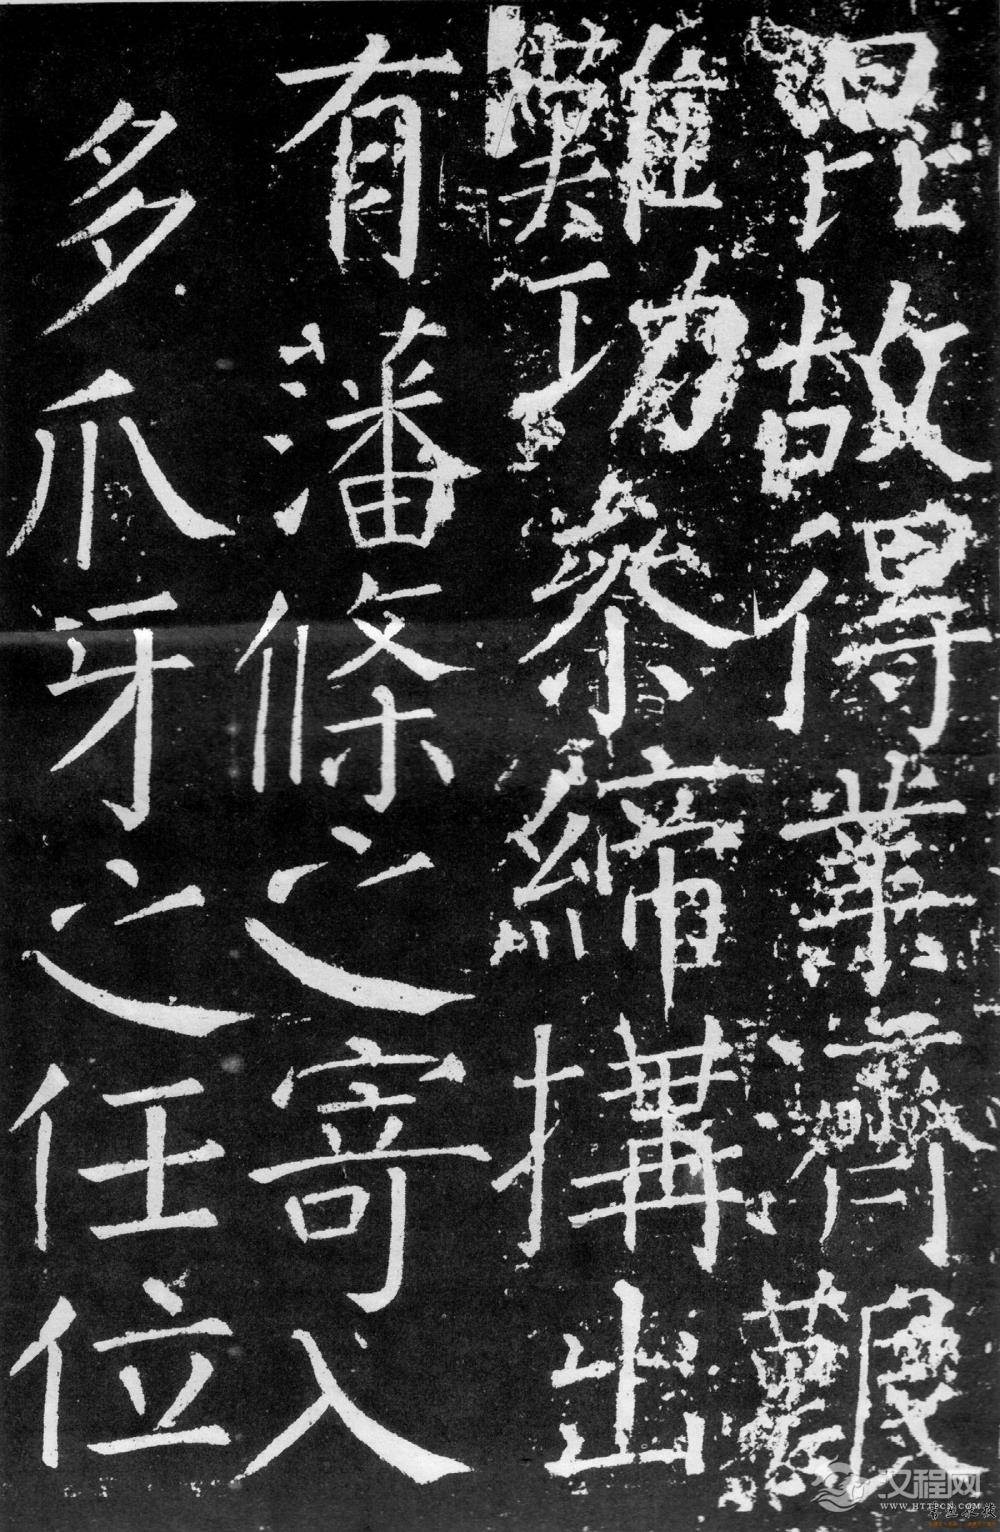 昆故得業濟艱
難功參締搆出
有藩條之寄入
多爪牙之任位
汉程网
WWW.HTTPCN.COM